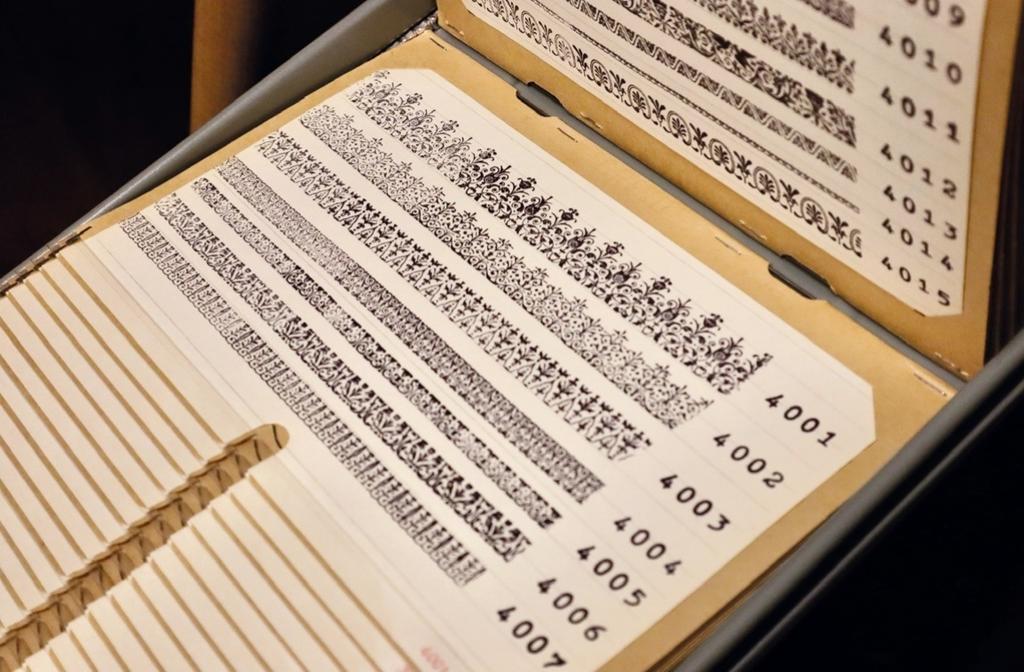 4010
4011
4012
4013
4014
4015
4001
4002
4003
4004
4005
4006
4007